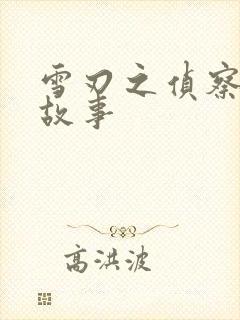 雪刃之偵察
故事
高洪波